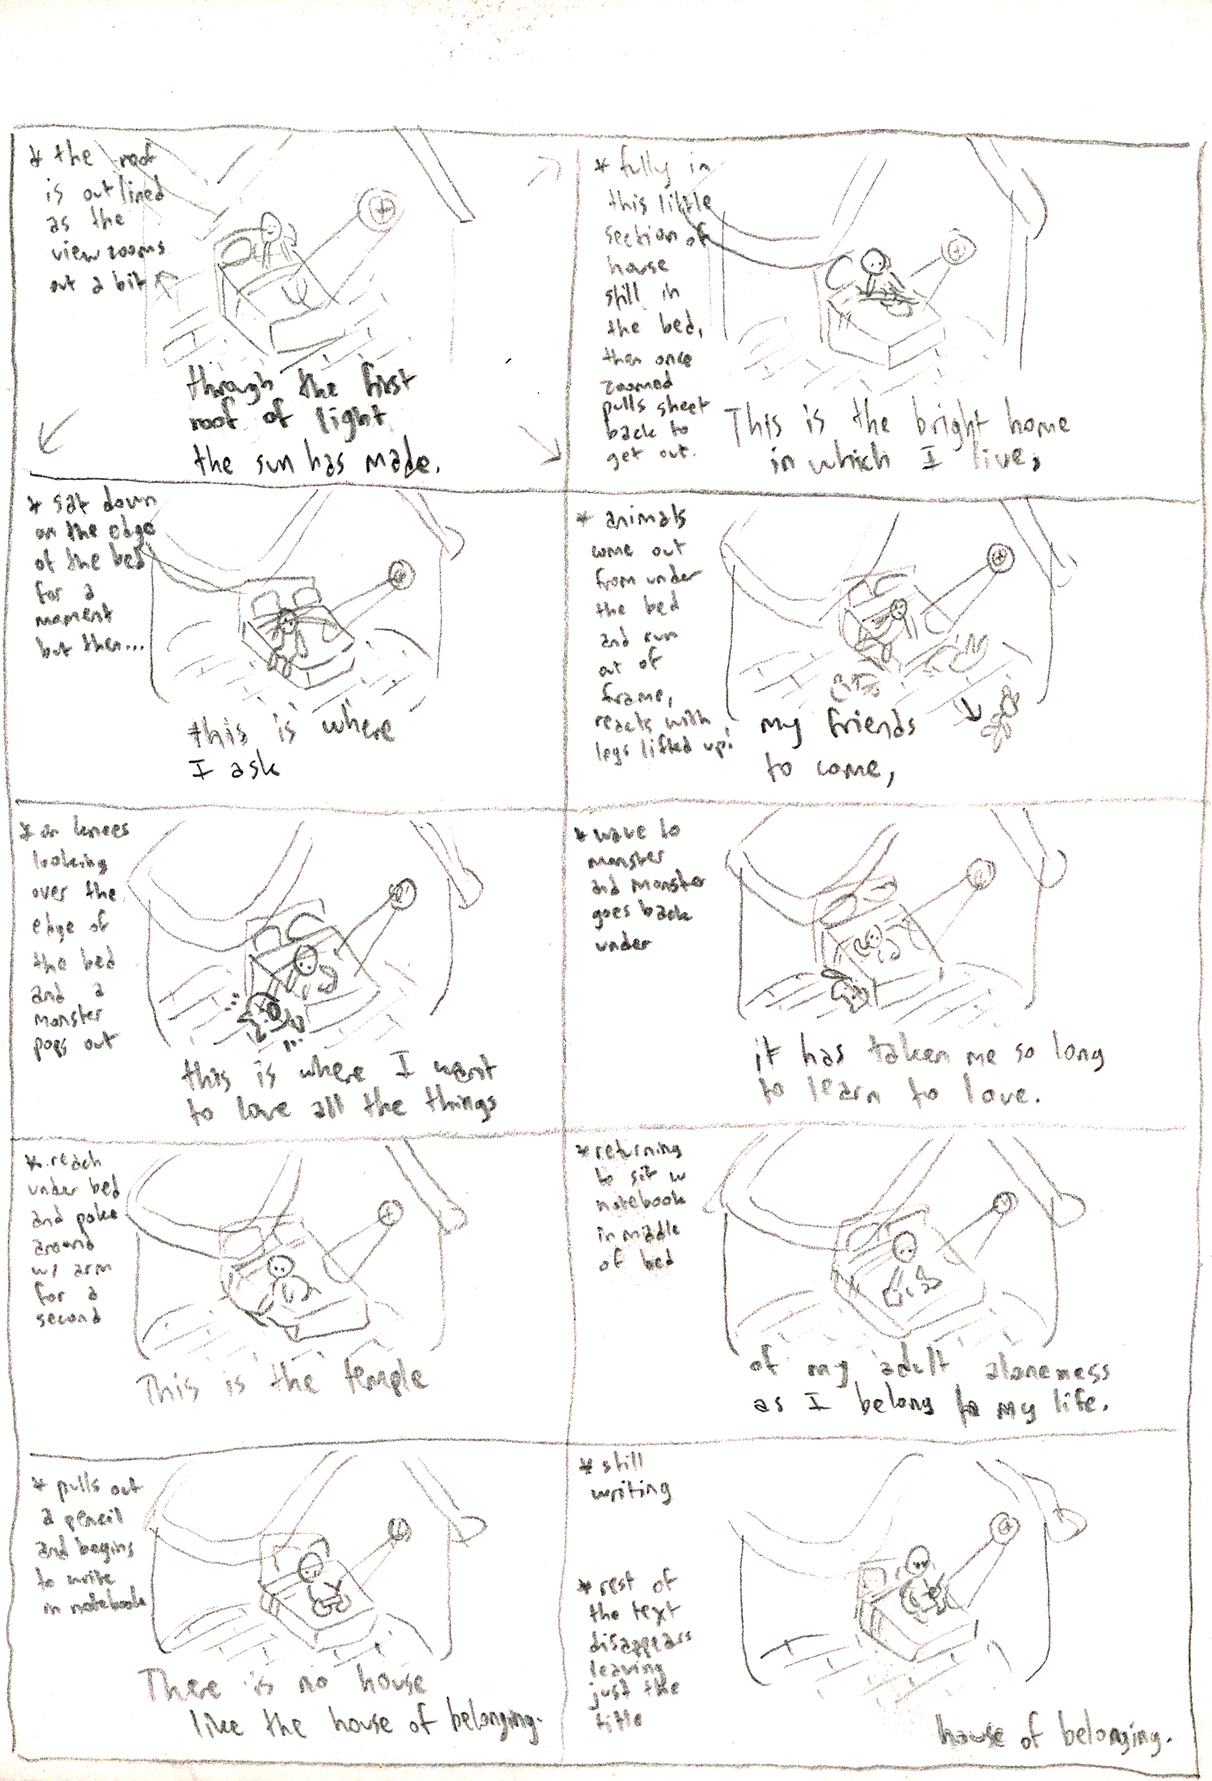 * the roof
is outlined
as the
view zooms
out a bit
through the first
roof of light
the sun has made.
* fully in
this little
section of
house
still in
the bed,
then once
zoomed
pulls sheet
back to
get out.
This is the bright home
in which I live,
* sat down
on the edge
of the bed
for a
moment
but then...
this is where
I ask
* animals
come out
from under
the bed
and run
out of
frame,
reacts with
legs lifted up!
my friends
to come,
* on knees
looking
over the
edge of
the bed
and a
monster
pops out
this is where I want
to love all the things
* wave to
monster
and monster
goes back
under
it has taken me so long
to learn to love.
* reach
under bed
and poke
around
w/ arm
for a
second
This is the temple
* returning
to sit w
notebook
in middle
of bed
of my adult aloneness
as I belong to my life.
* pulls out
a pencil
and begins
to write
in notebook
There is no house
like the house of belonging.
* still
writing
* rest of
the text
disappears
leaving
just the
title
house of belonging.